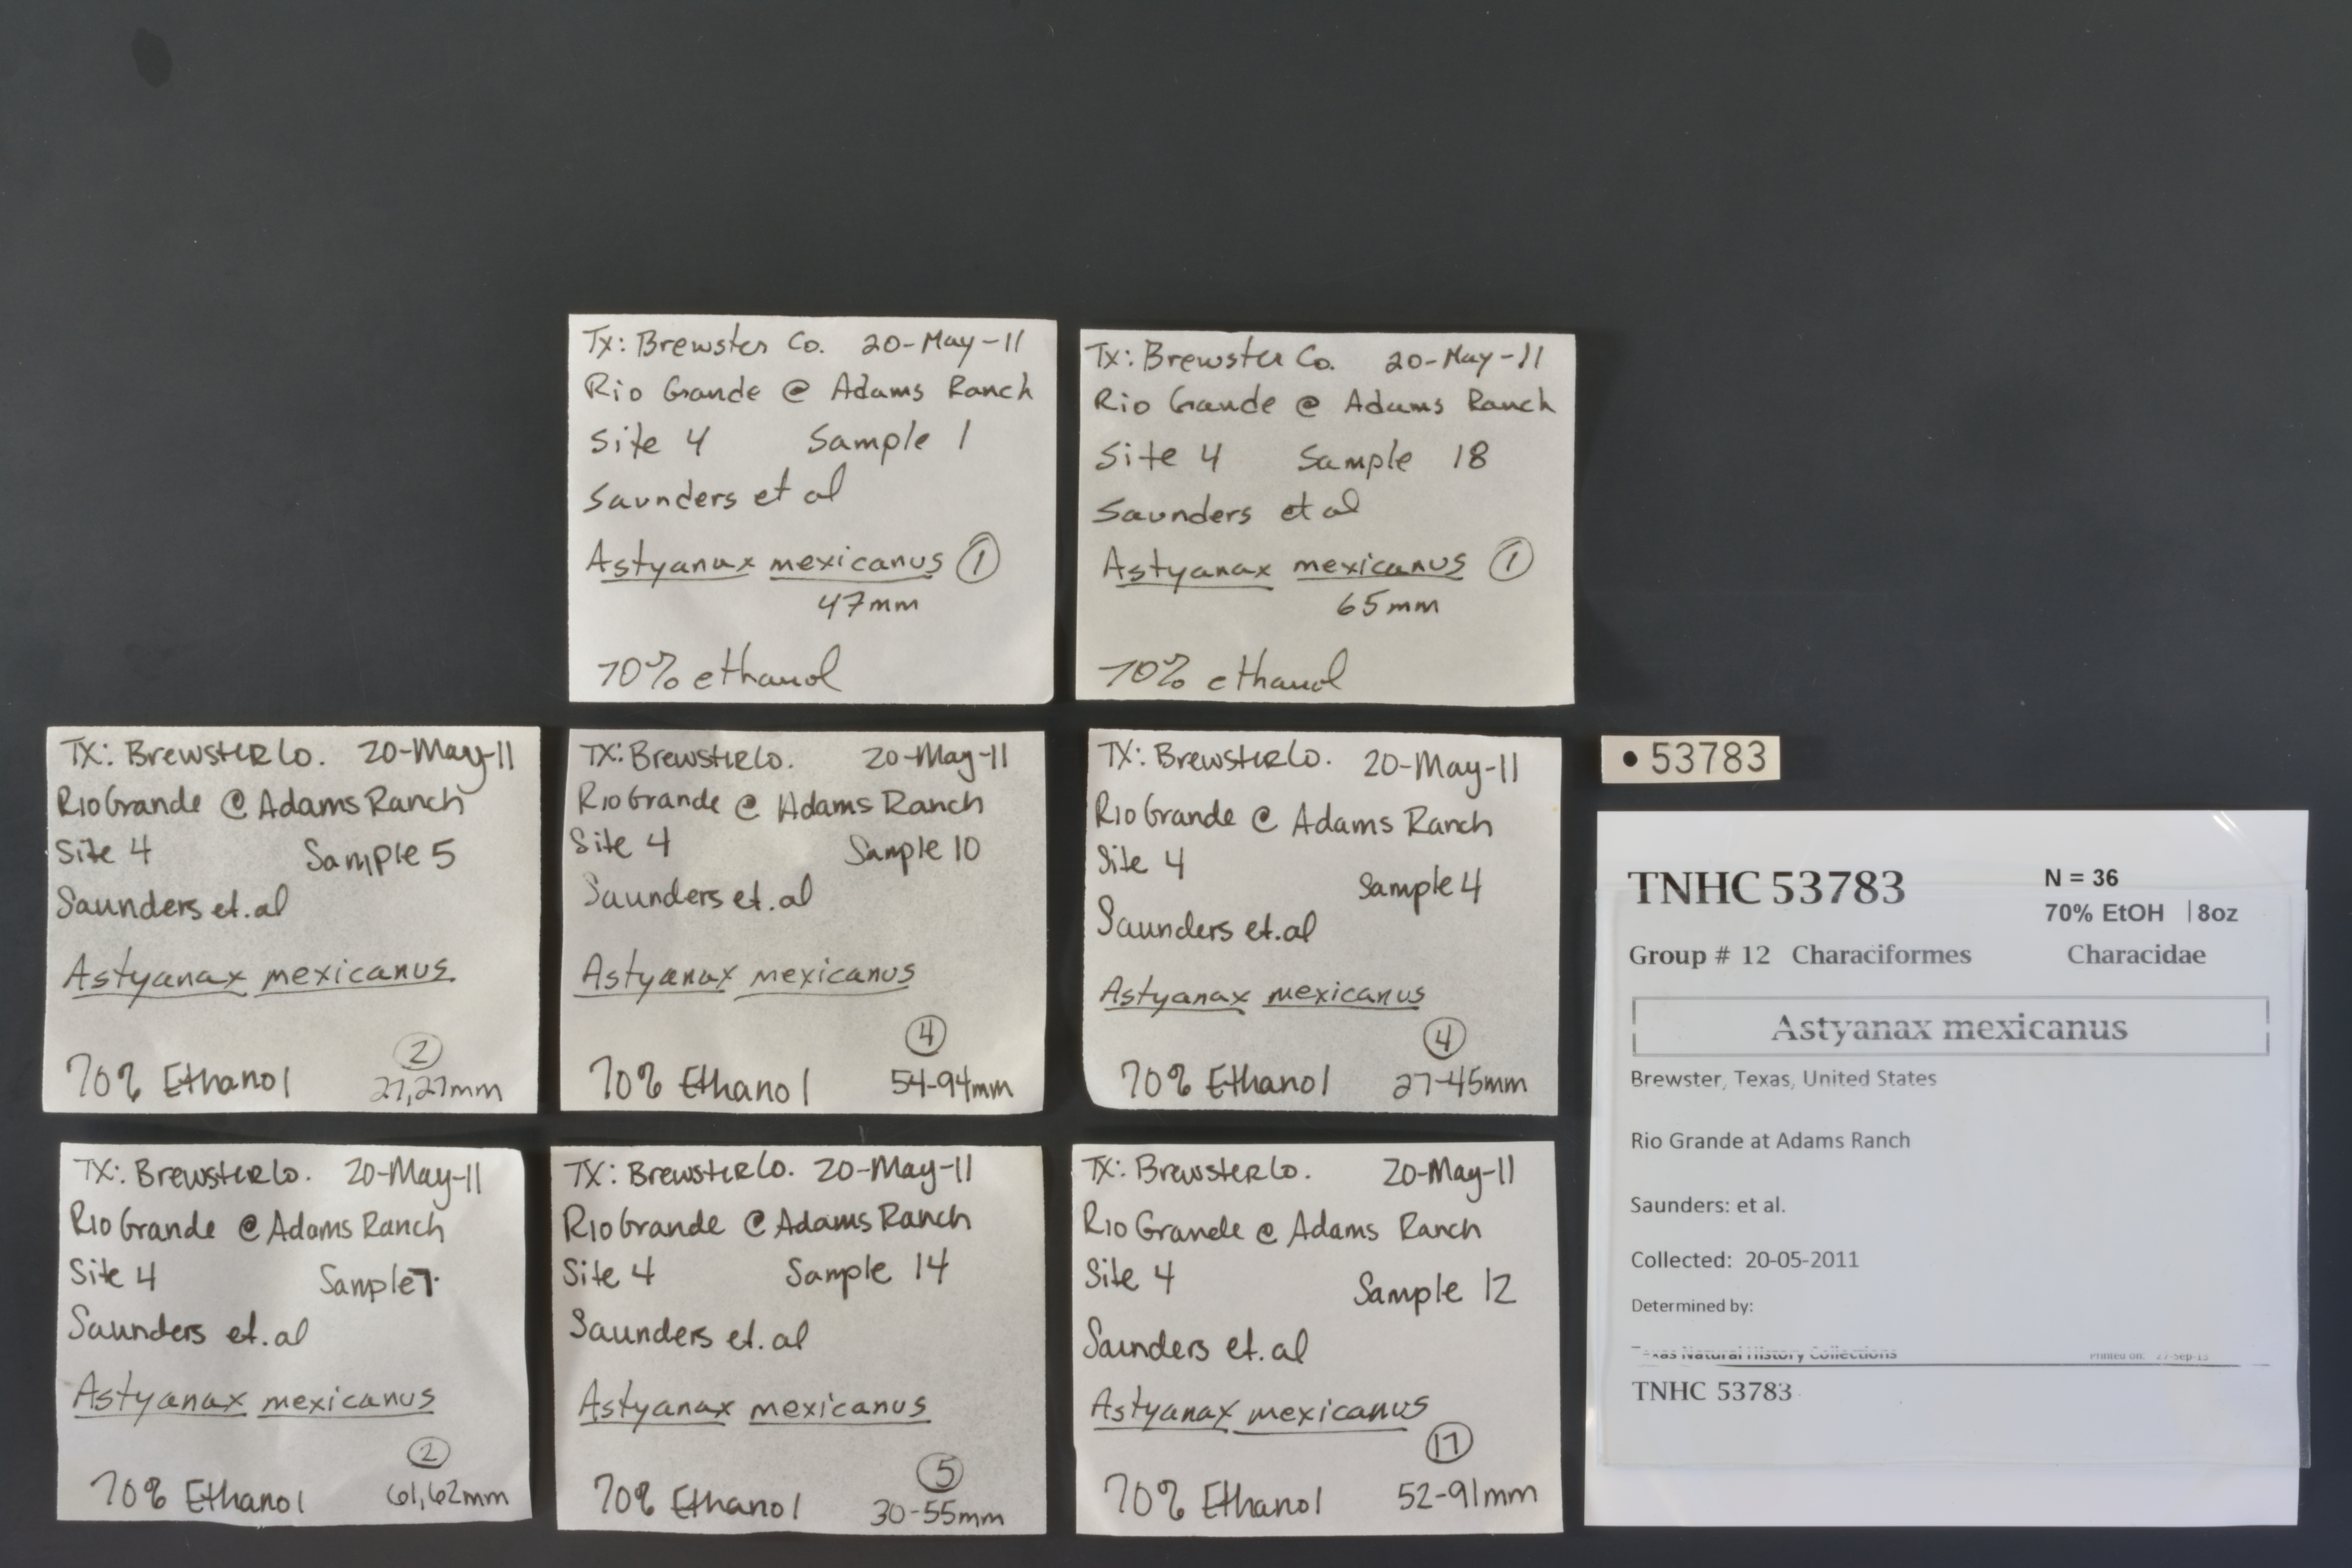 Tx: Brewster Co. 20-May-11
Rio Grande @ Adams Ranch
Site 4 Sample 1
Saunders et al
Astyanax mexicanus 1
47mm
70% ethanol
Tx: Brewster Co. 20-May-11
Rio Grande @ Adams Ranch
Site 4 Sample 18
Saunders et al
Astyanax mexicanus 1
65mm
70% ethanol
TX: Brewster Co. 20-May-11
Rio Grande @ Adams Ranch
Site 4 Sample 5
Saunders et.al
Astyanax mexicanus
2
70% Ethanol 27,27mm
TX: Brewster Co. 20-May-11
Rio Grande @ Adams Ranch
Site 4 Sample 10
Saunders et.al
Astyanax mexicanus
4
70% Ethanol 54-94mm
TX: Brewster Co. 20-May-11
Rio Grande @ Adams Ranch
Site 4
Sample 4
Saunders et.al
Astyanax mexicanus
4
70% Ethanol 27-45mm
• 53783
TNHC 53783 N = 36
70% EtOH | 8oz
Group # 12 Characiformes Characidae
Astyanax mexicanus
Brewster, Texas, United States
Rio Grande at Adams Ranch
Saunders: et al.
Collected: 20-05-2011
Determined by:
Texas Natural History Collections Printed on: 27-Sep-13
TNHC 53783
TX: Brewster Co. 20-May-11
Rio Grande @ Adams Ranch
Site 4 Sample 7
Saunders et.al
Astyanax mexicanus
2
70% Ethanol 61,62mm
TX: Brewster Co. 20-May-11
Rio Grande @ Adams Ranch
Site 4 Sample 14
Saunders et.al
Astyanax mexicanus
5
70% Ethanol 30-55mm
TX: Brewster Co. 20-May-11
Rio Grande @ Adams Ranch
Site 4 Sample 12
Saunders et.al
Astyanax mexicanus
17
70% Ethanol 52-91mm